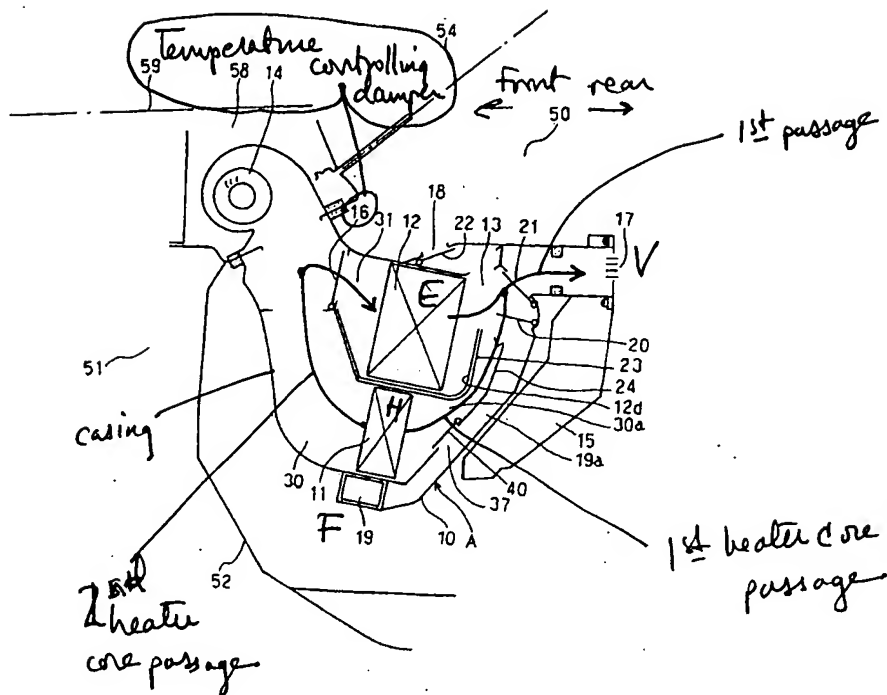 Temperature
controlling
damper
54
59
58
14
Front rear
50
1st passage
16
31
12
18
22
13
21
17
V
E
20
23
24
12d
30a
15
19a
51
casing
H
30
11
F
19
10
A
37
40
52
heater
core passage
1st heater core
passage